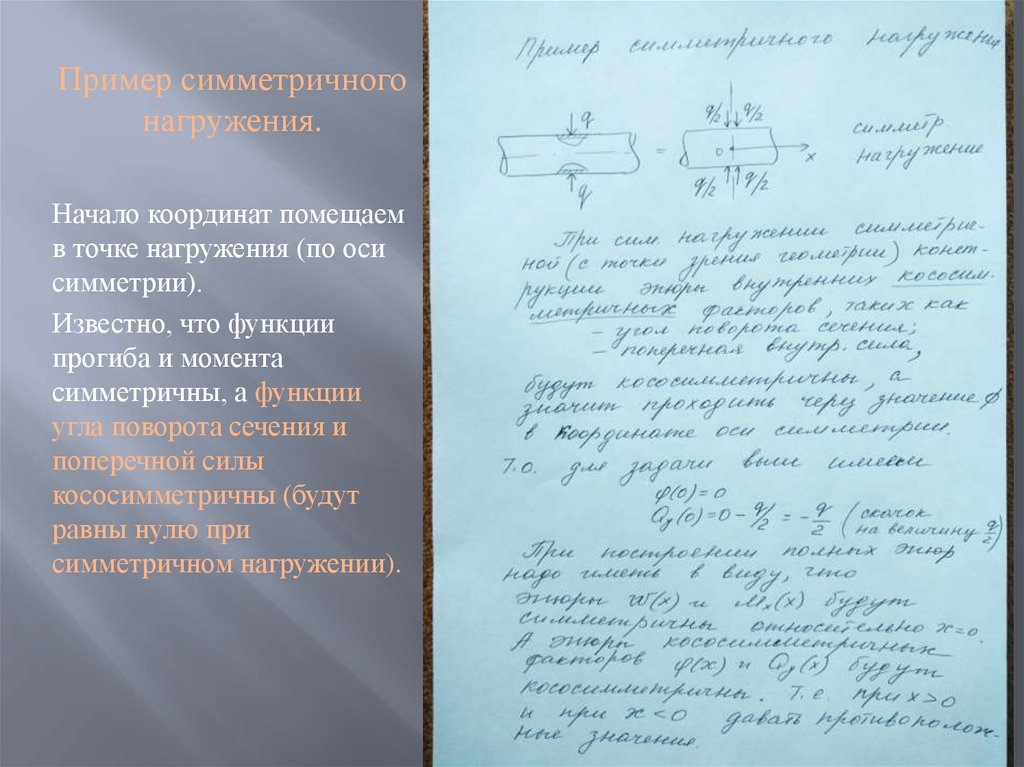 Пример симметричного
нагружения.
Начало координат помещаем
в точке нагружения (по оси
симметрии).
Известно, что функции
прогиба и момента
симметричны, а функции
угла поворота сечения и
поперечной силы
кососимметричны (будут
равны нулю при
симметричном нагружении).
Пример симметричного нагружения
q
q
=
q/2 q/2
0
x
q/2 q/2
симметр
нагружение
При сим. нагружении симметрич-
ной (с точки зрения геометрии) конст-
рукции эпюры внутренних кососим-
метричных факторов, таких как
– угол поворота сечения;
– поперечная внутр. сила,
будут кососимметричны, а
значит проходить через значение ∅
в координате оси симметрии.
Т.о. для задачи выше имеем
φ(0) = 0
Qy(0) = 0 – q/2 = – q/2 (скачок
на величину q/2)
При построении полных эпюр
надо иметь в виду, что
эпюры w(x) и Mx(x) будут
симметричны относительно x=0.
А эпюры кососимметричных
факторов φ(x) и Qy(x) будут
кососимметричны. Т.е. при x>0
и при x<0 давать противополож-
ные значения.